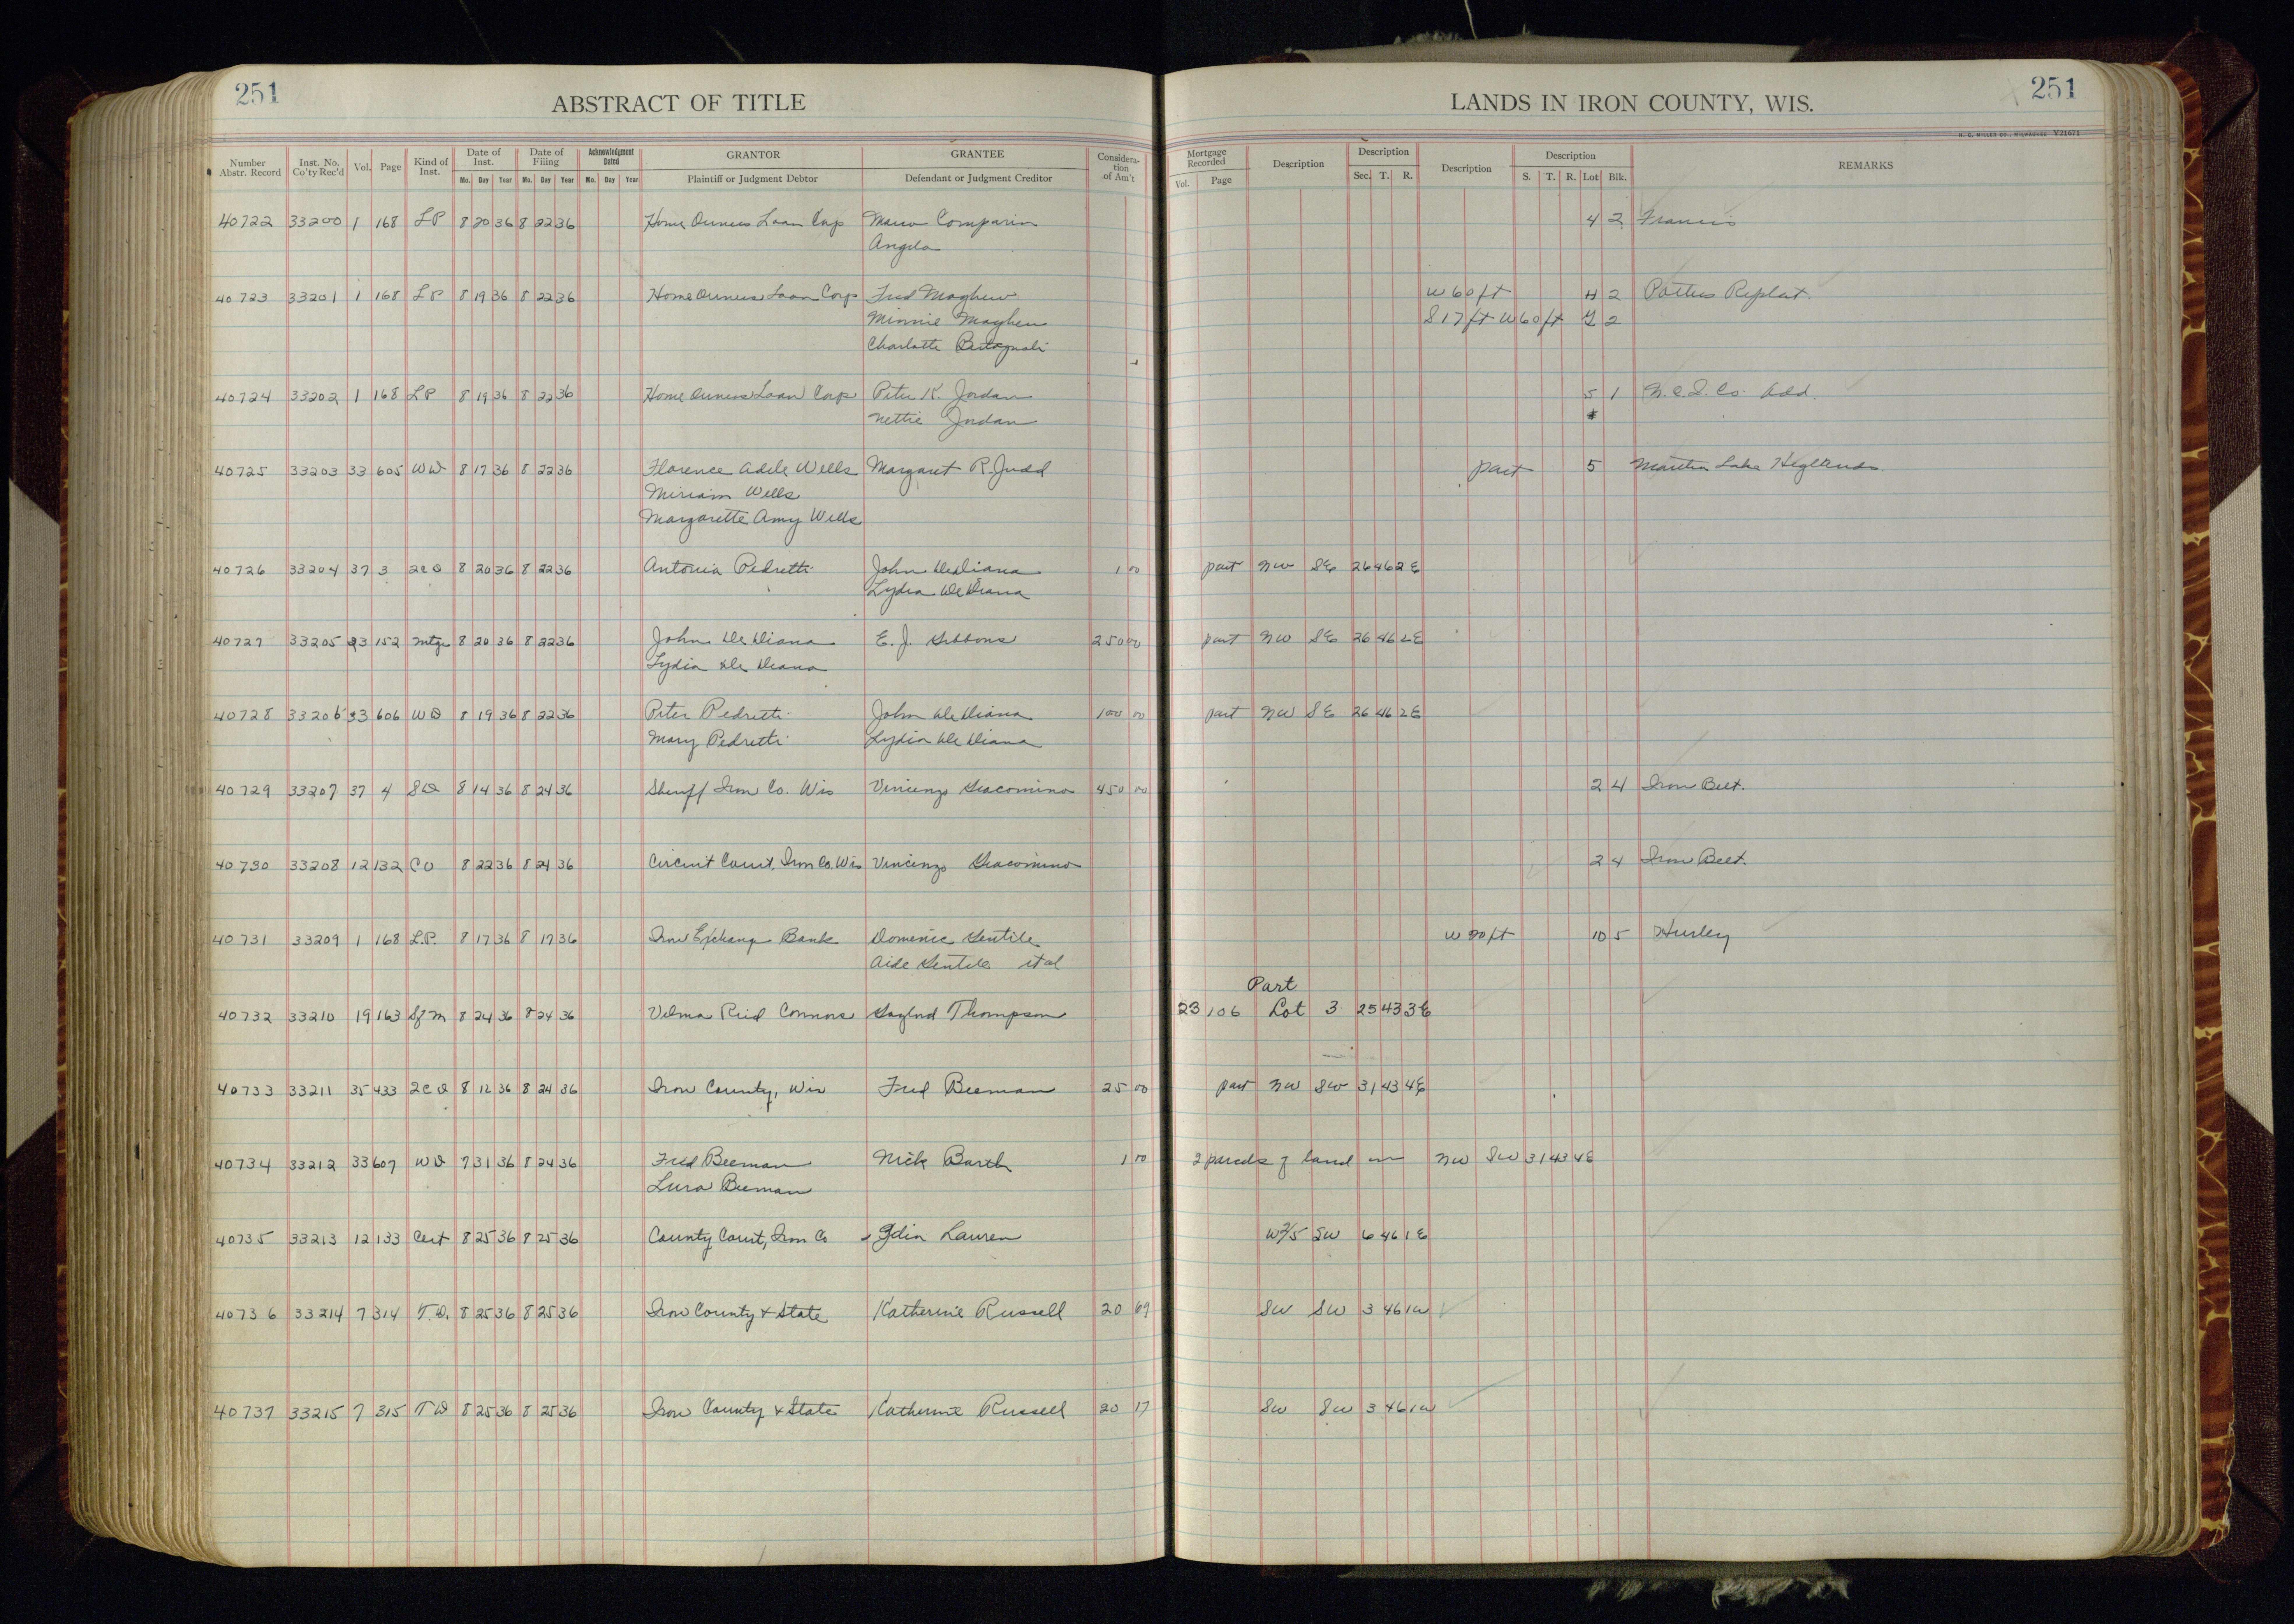 251
ABSTRACT OF TITLE
Number Abstr. Record Inst. No. Co'ty Rec'd Vol. Page Kind of Inst. Date of Inst. Mo. Day Year Date of Filing Mo. Day Year Acknowledgment Dated Mo. Day Year GRANTOR Plaintiff or Judgment Debtor GRANTEE Defendant or Judgment Creditor Considera-tion of Am't
40722 33200 1 168 LP 8 20 36 8 22 36 Home Owners Loan Corp Marco Comparin
Angela
40723 33201 1 168 LP 8 19 36 8 22 36 Home Owners Loan Corp Fred Mayhew
Minnie Mayhew
Charlotte
40724 33202 1 168 LP 8 19 36 8 22 36 Home Owners Loan Corp Peter K. Jordan
Nettie Jordan
40725 33203 33 605 WD 8 17 36 8 22 36 Florence Adele Wells Margaret R. Judd
Miriam Wells
Margarette Amy Wells
40726 33204 37 3 2CD 8 20 36 8 22 36 Antonia Pedretti John DeDiana 1 00
Lydia DeDiana
40727 33205 23 152 Mtge 8 20 36 8 22 36 John DeDiana E. J. Gibbons 250 00
Lydia De Diana
40728 33206 33 606 WD 8 19 36 8 22 36 Peter Pedretti John DeDiana 100 00
Mary Pedretti Lydia De Diana
40729 33207 37 4 SD 8 14 36 8 24 36 Sheriff Iron Co. Wis Vincenzo Giacomino 450 00
40730 33208 12 132 CO 8 22 36 8 24 36 Circuit Court, Iron Co. Wis Vincenzo Giacomino
40731 33209 1 168 L.P. 8 17 36 8 17 36 Iron Exchange Bank Domenic Gentile
Aide Gentile et al
40732 33210 19 163 SfM 8 24 36 8 24 36 Velma Reid Connors Gaylord Thompson
40733 33211 35 433 2CD 8 12 36 8 24 36 Iron County, Wis Fred Beeman 25 00
40734 33212 33 607 WD 7 31 36 8 24 36 Fred Beeman Nick Barth 1 00
Lura Beeman
40735 33213 12 133 Cert 8 25 36 8 25 36 County Court, Iron Co Lauren
40736 33214 7 314 T.D. 8 25 36 8 25 36 Iron County & State Katherine Russell 20 69
40737 33215 7 315 TD 8 25 36 8 25 36 Iron County & State Katherine Russell 20 17
LANDS IN IRON COUNTY, WIS.
251
H. C. MILLER CO., MILWAUKEE V21671
Mortgage Recorded Vol. Page Description Description Sec. T. R. Description Description S. T. R. Lot Blk. REMARKS
4 2 Francis
W 60 ft H 2 Potters Replat
S 17 ft W 60 ft 2
5 1 Co. Add.
part 5 Martha Lake Heglands
part NW SE 26 46 2E
part NW SE 26 46 2E
part NW SE 26 46 2E
2 4 Iron Belt.
2 4 Iron Belt.
W 20 ft 10 5 Hurley
Part
23 106 Lot 3 25 43 3E
part NW SW 31 43 4E
2 parcels of land in NW SW 31 43 4E
W 2/5 SW 6 46 1E
SW SW 3 46 1W
SW SW 3 46 1W